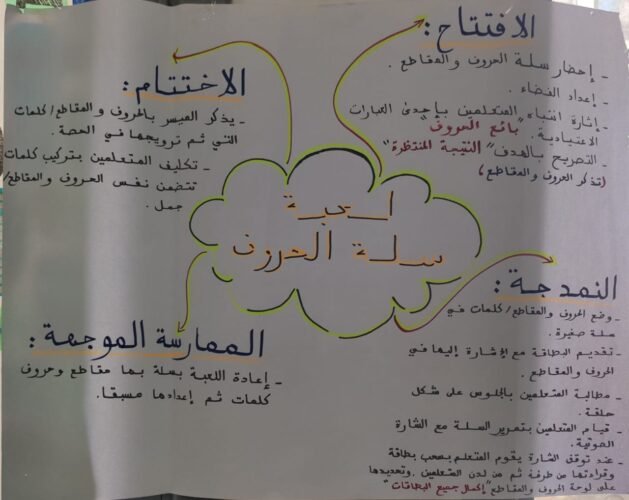 لعبة
سلة الحروف
الافتتاح:
- إحضار سلة الحروف والمقاطع.
- إعداد الفضاء.
- إثارة انتباه المتعلمين بإحدى العبارات
الاعتيادية. "بائع الحروف"
- التصريح بالهدف "النتيجة المنتظرة"
(تذكر الحروف والمقاطع)
النمدجة:
- وضع الحروف والمقاطع/كلمات في
سلة صغيرة.
- تقديم البطاقة مع الإشارة إليها في
الحروف والمقاطع.
- مطالبة المتعلمين بالجلوس على شكل
حلقة.
- قيام المتعلمين بتمرير السلة مع الشارة
الصوتية.
- عند توقف الشارة يقوم المتعلم بسحب بطاقة
وقراءتها من طرفه ثم من لدن المتعلمين. وتحديدها
على لوحة الحروف والمقاطع "إكمال جميع البطاقات"
الممارسة الموجهة:
- إعادة اللعبة بسلة بها مقاطع وحروف
كلمات ثم إعدادها مسبقا.
الاختتام:
- يذكر الميسر بالحروف والمقاطع/كلمات
التي ثم ترويجها في الحصة.
- تكليف المتعلمين بتركيب كلمات
تتضمن نفس الحروف والمقاطع/
جمل.